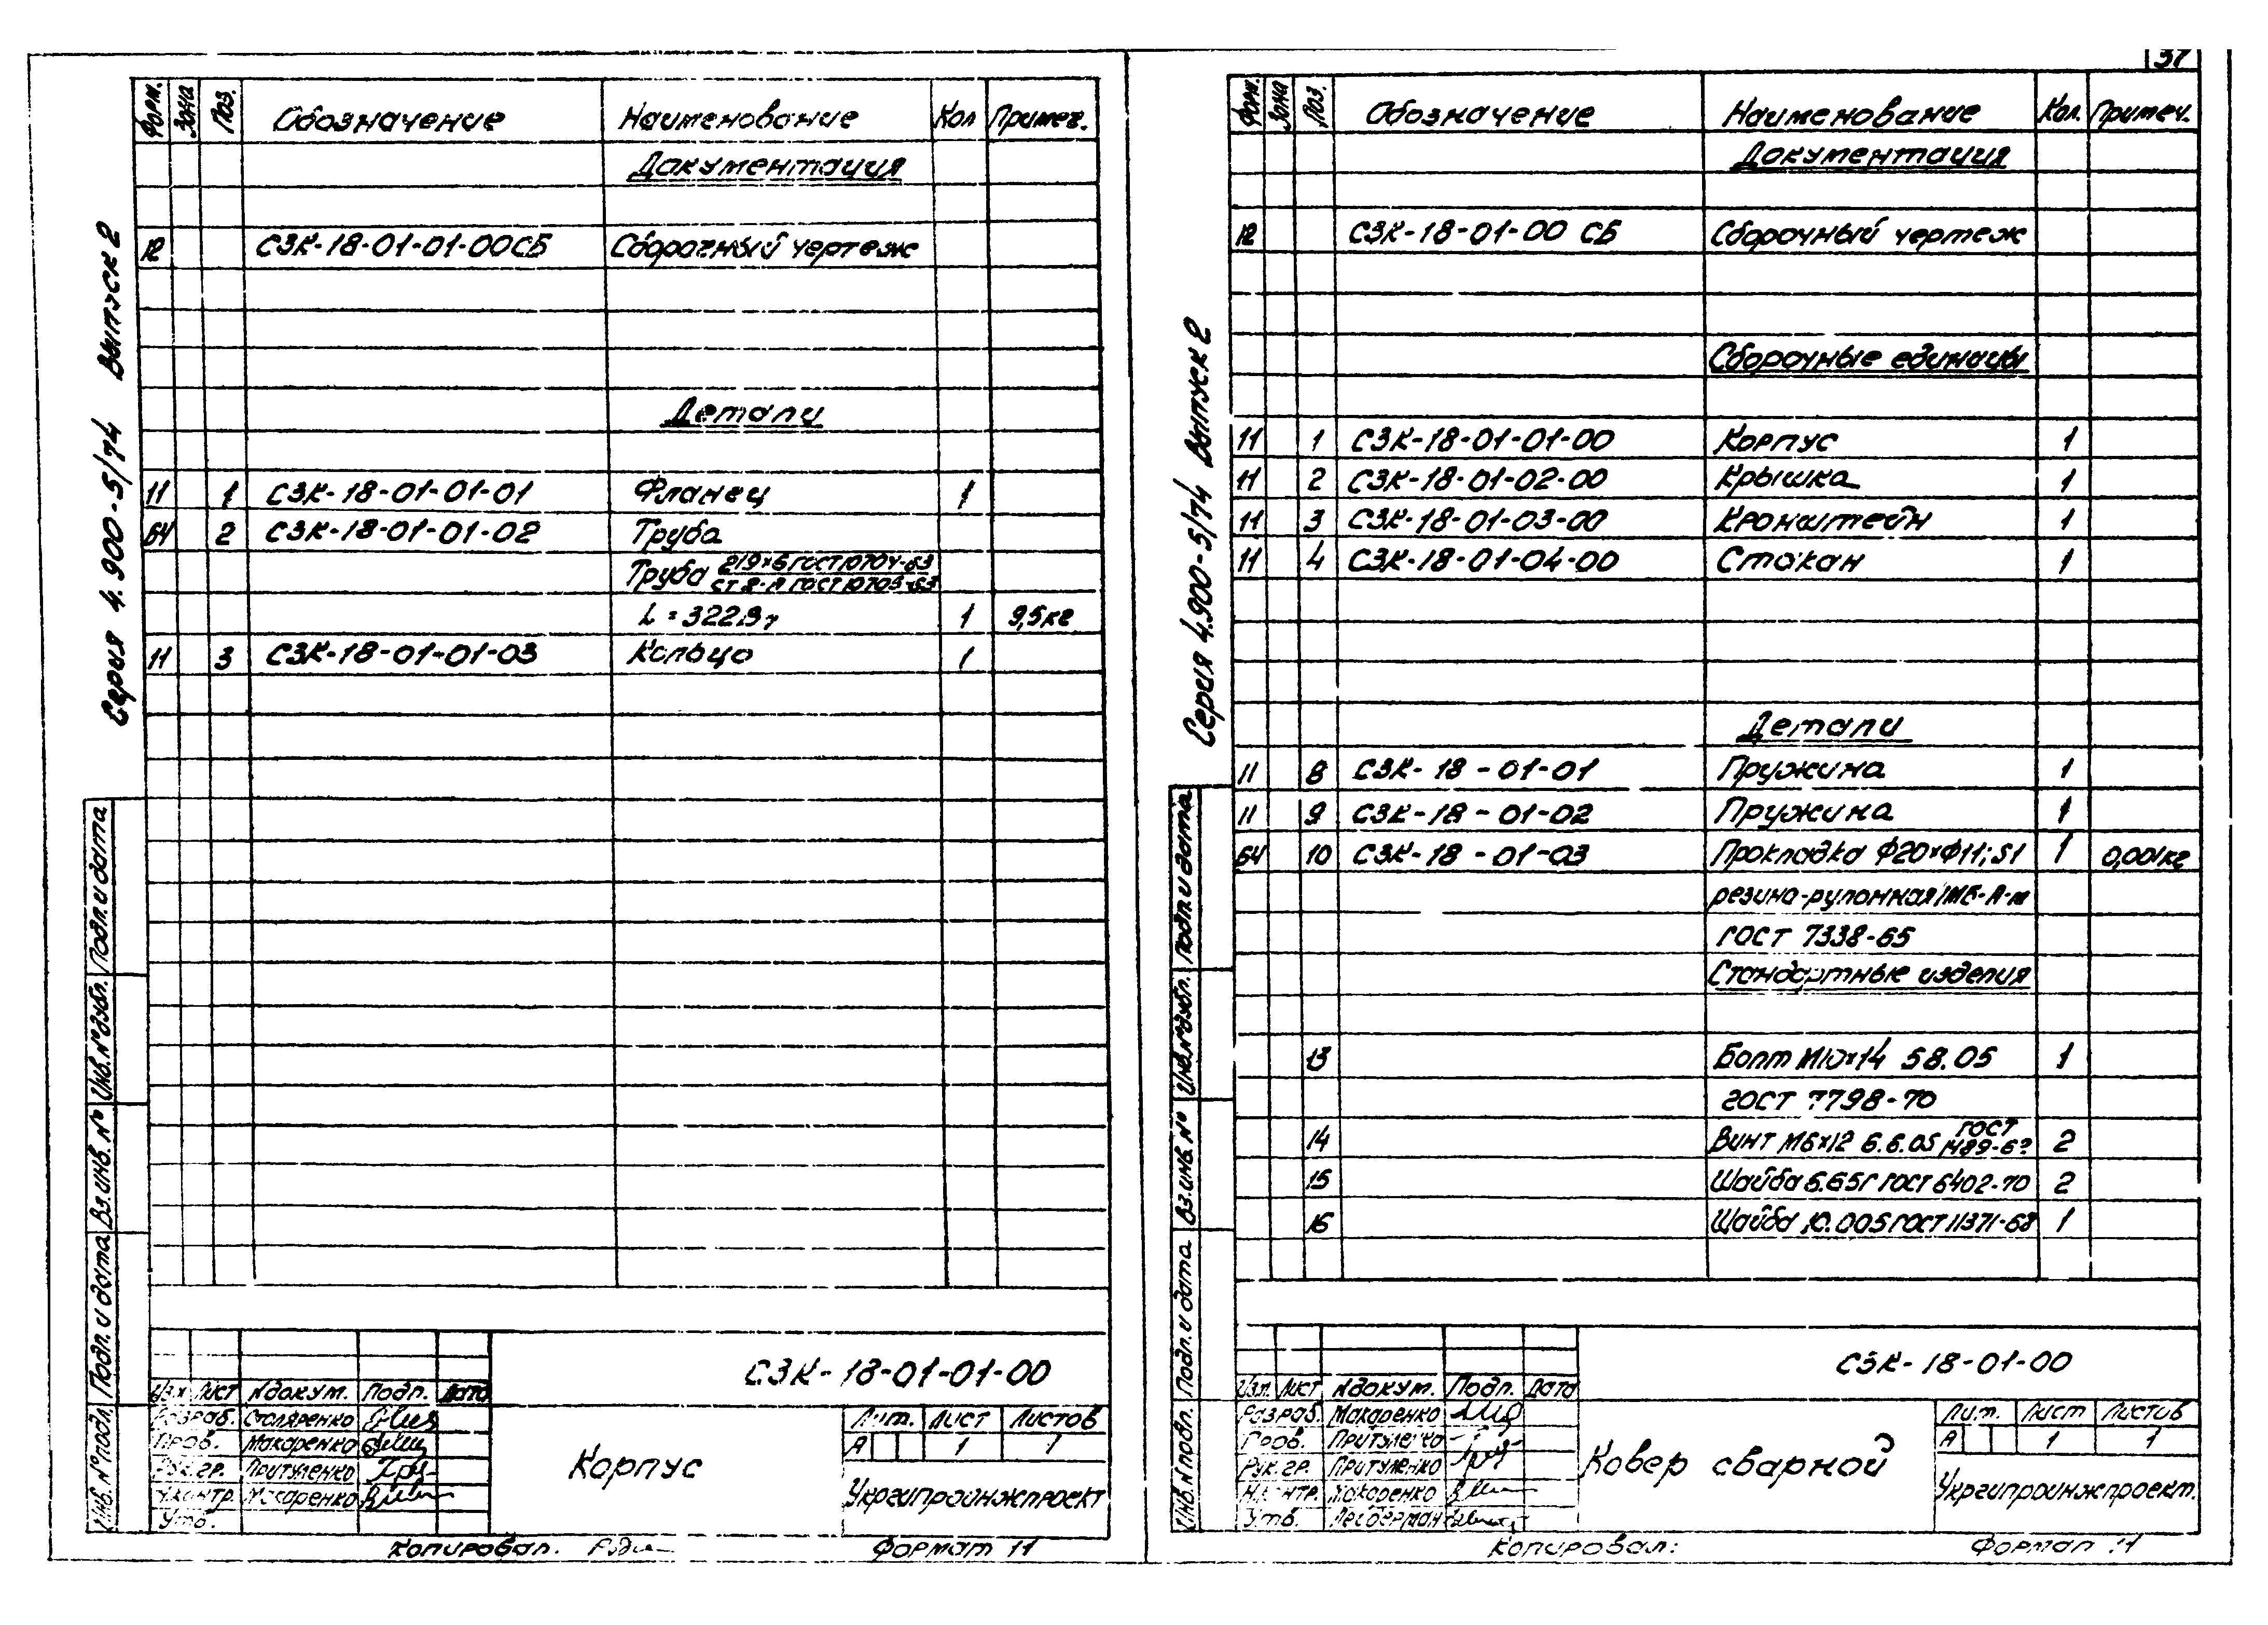 37
Серия 4.900-5/74 Выпуск 2
Форм. Зона Поз. Обозначение Наименование Кол Примеч.
Документация
12 СЗК-18-01-01-00СБ Сборочный чертеж
Детали
11 1 СЗК-18-01-01-01 Фланец 1
БЧ 2 СЗК-18-01-01-02 Труба
Труба 219х6 ГОСТ 10704-63
ГОСТ
L = 322 1 9,5кг
11 3 СЗК-18-01-01-03 Кольцо 1
Подп. и дата
Инв. № дубл.
Вз. инв. №
Подп. и дата
Инв. № подл.
СЗК-18-01-01-00
Изм Лист № докум. Подп. Дата
Разраб. Столяренко
Пров. Макаренко
Рук. гр. Притуленко
Н.контр. Макаренко
Утв.
Корпус
Лит. Лист Листов
А 1 1
Укргипроинжпроект
Копировал. Формат 11
Серия 4.900-5/74 Выпуск 2
Форм. Зона Поз. Обозначение Наименование Кол. Примеч.
Документация
12 СЗК-18-01-00 СБ Сборочный чертеж
Сборочные единицы
11 1 СЗК-18-01-01-00 Корпус 1
11 2 СЗК-18-01-02-00 Крышка 1
11 3 СЗК-18-01-03-00 Кронштейн 1
11 4 СЗК-18-01-04-00 Стакан 1
Детали
11 8 СЗК-18-01-01 Пружина 1
11 9 СЗК-18-01-02 Пружина 1
БЧ 10 СЗК-18-01-03 Прокладка Ф20хФ11; S1 1 0,001кг
резина-рулонная
ГОСТ 7338-65
Стандартные изделия
13 Болт М10х14 58.05 1
ГОСТ 7798-70
14 Винт М6х12 6.6.05 ГОСТ 2
15 Шайба 6.65Г ГОСТ 6402-70 2
16 Шайба 10.005 ГОСТ 11371-68 1
Подп. и дата
Инв. № дубл.
Вз. инв. №
Подп. и дата
Инв. № подл.
СЗК-18-01-00
Изм. Лист № докум. Подп. Дата
Разраб. Макаренко
Пров. Притуленко
Рук. гр. Притуленко
Н.контр. Макаренко
Утв. Лесберман
Ковер сварной
Лит. Лист Листов
А 1 1
Укргипроинжпроект.
Копировал: Формат 11